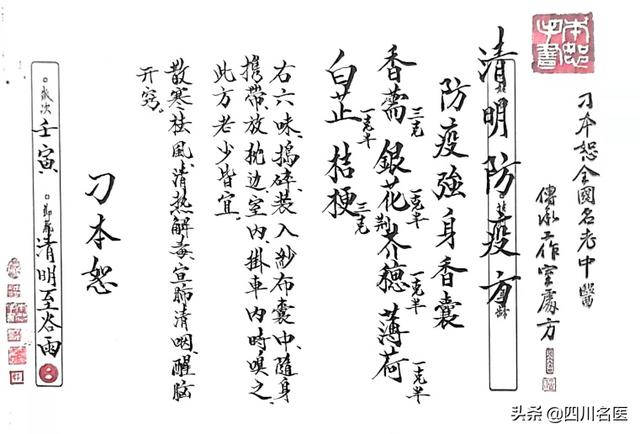 本恕手書
刁本恕全國名老中醫
傳承工作室處方
清明防疫方
防疫強身香囊
香薷三克 銀花一克半 荆芥穗一克半 薄荷一克半
白芷一克半 桔梗三克
右六味、搗碎、装入紗布囊中、隨身
携帶、放枕边、室内、掛車内、時嗅之、
此方老少皆宜
散寒祛風、清热解毒、宣肺清咽、醒脑
开窍。
刁本恕
歲次 壬寅 節氣 清明至谷雨
头条 @四川名医